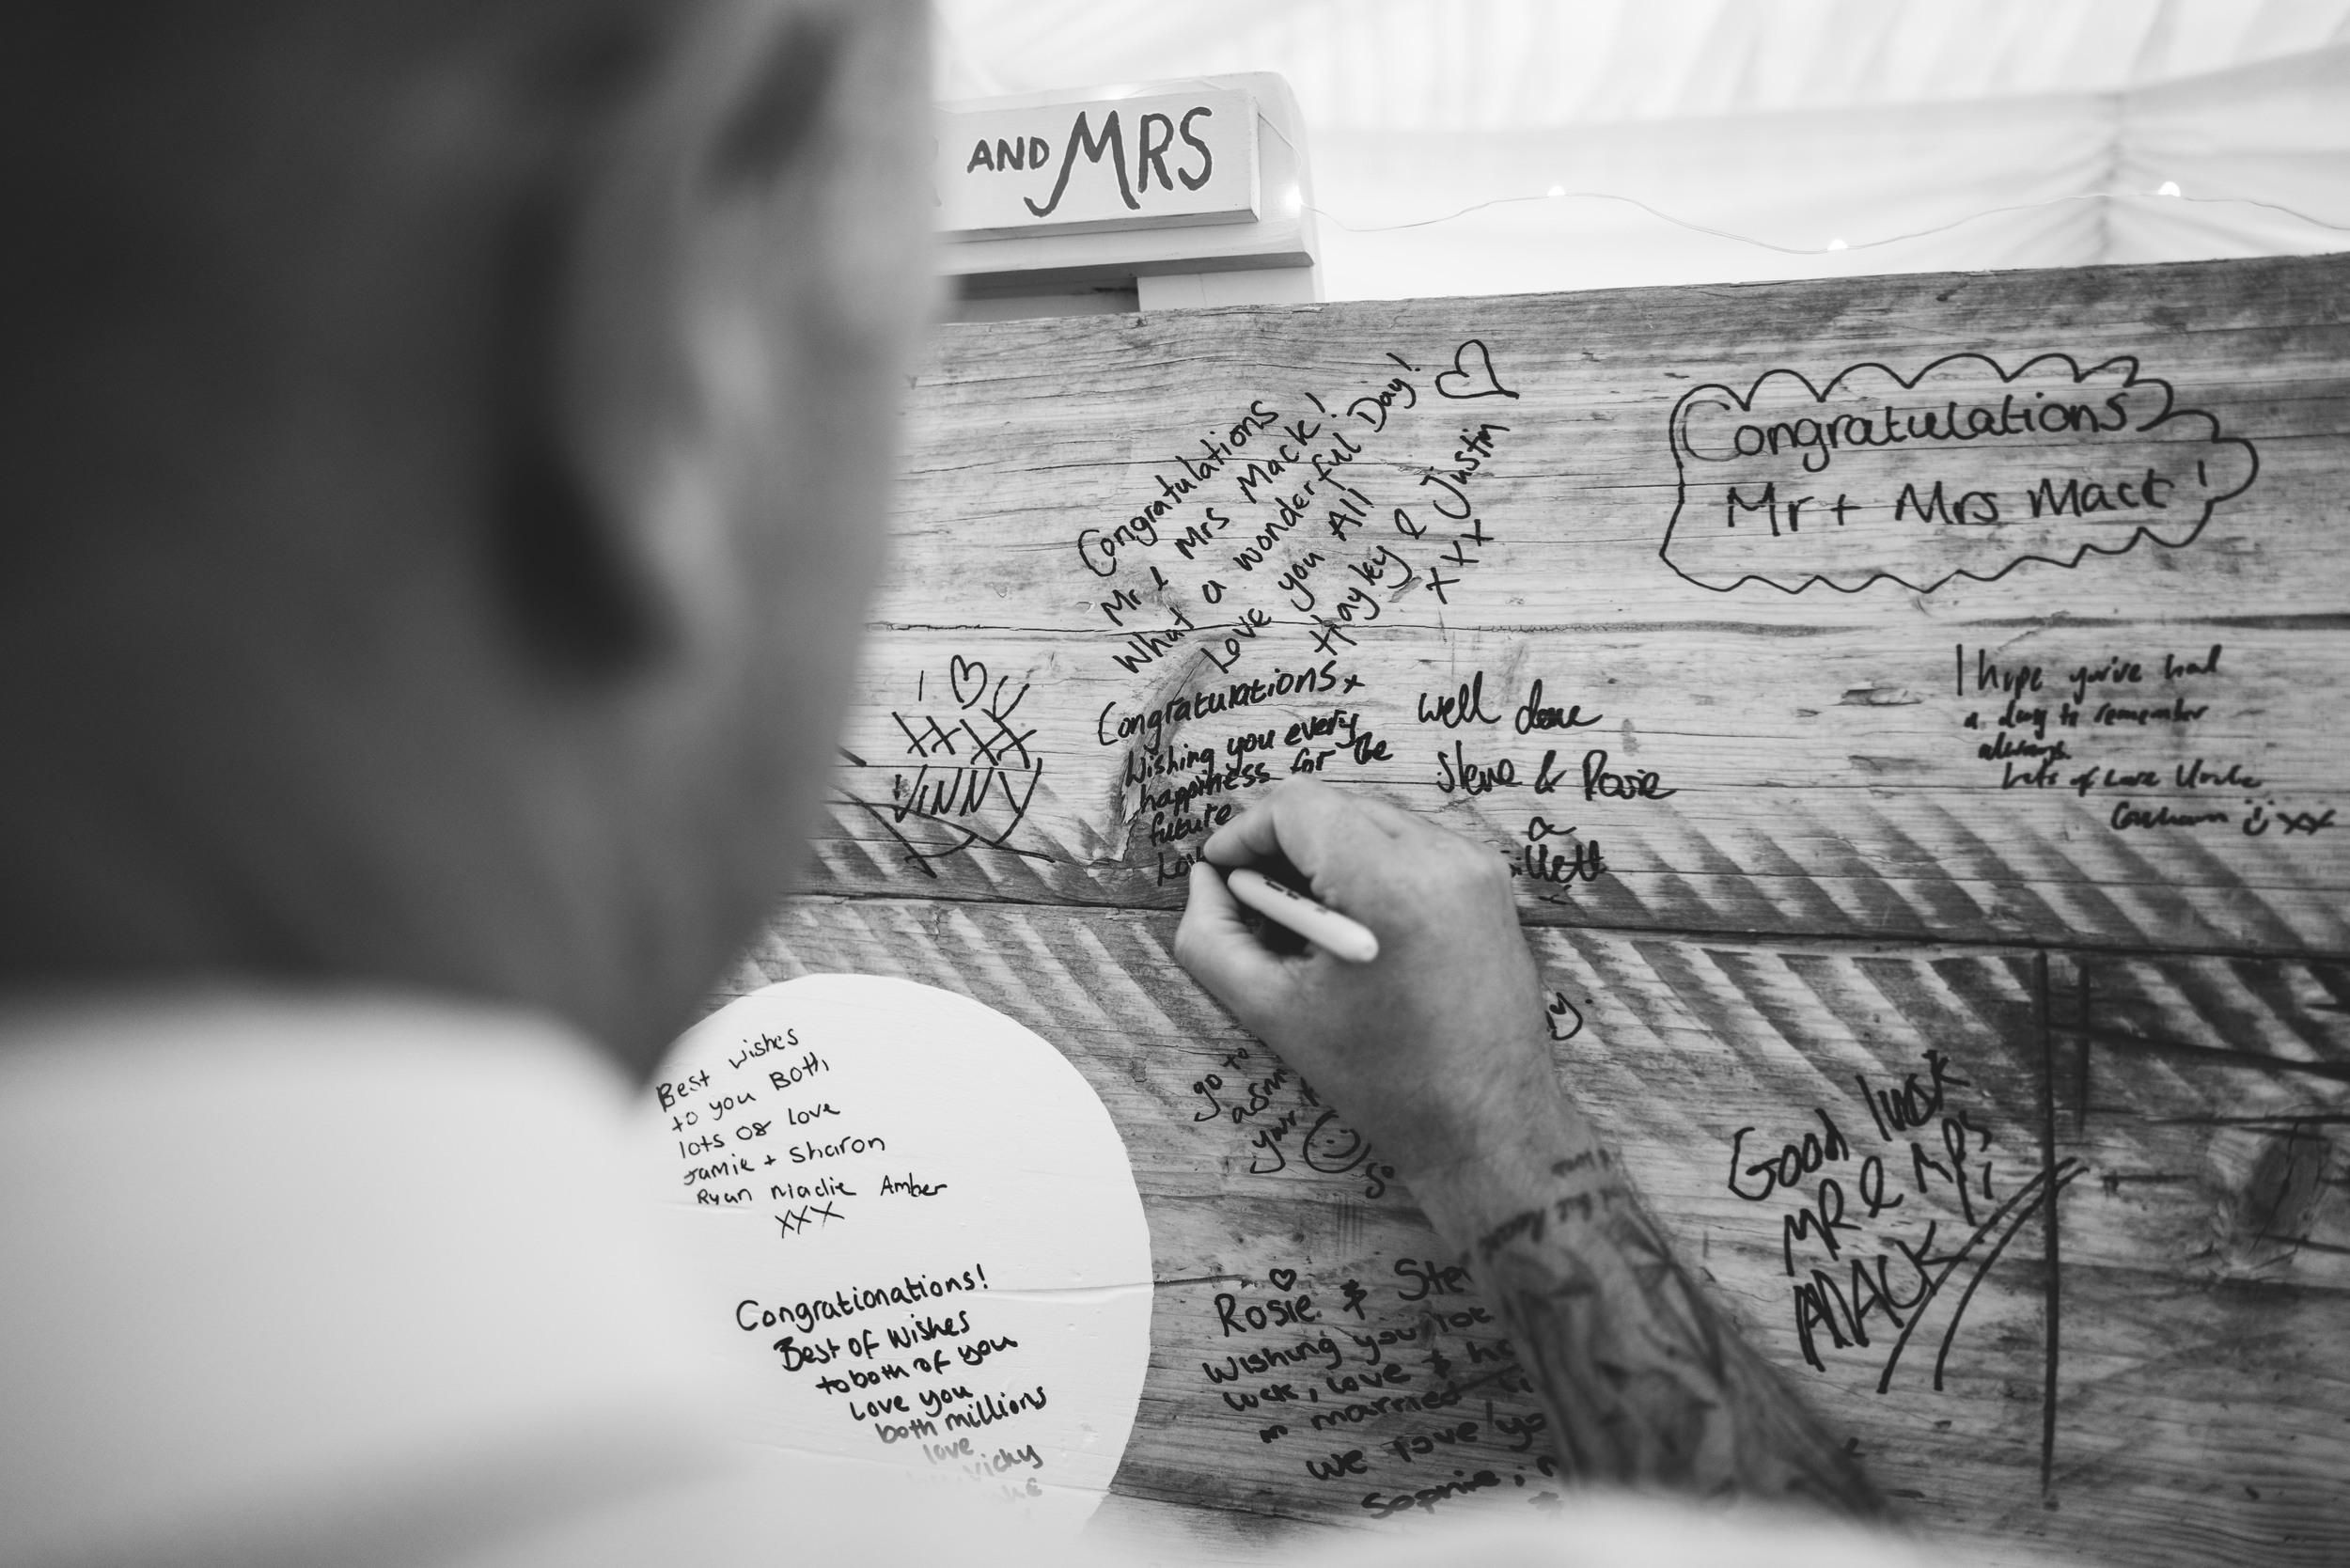 AND MRS
Congratulations
Mr & Mrs Mack!
What a wonderful Day!
Love you All
Hayley & Justin
xxx
Congratulations
Mr + Mrs Mack!
I
VINNY
Congratulations x
Wishing you every
happiness for the
future
well done
Steve & Rosie
I hope you've had
a day to remember
always
Lots of Love Uncle
Graham xx
Best wishes
to you Both,
lots of love
Jamie + Sharon
Ryan Amber
xxx
Congrationations!
Best of wishes
to both of you
Love you
both millions
love
Vicky
go to
Good luck
MR & MRS
MACK
Rosie &
Wishing you
luck, love &
married
we love
Sophie